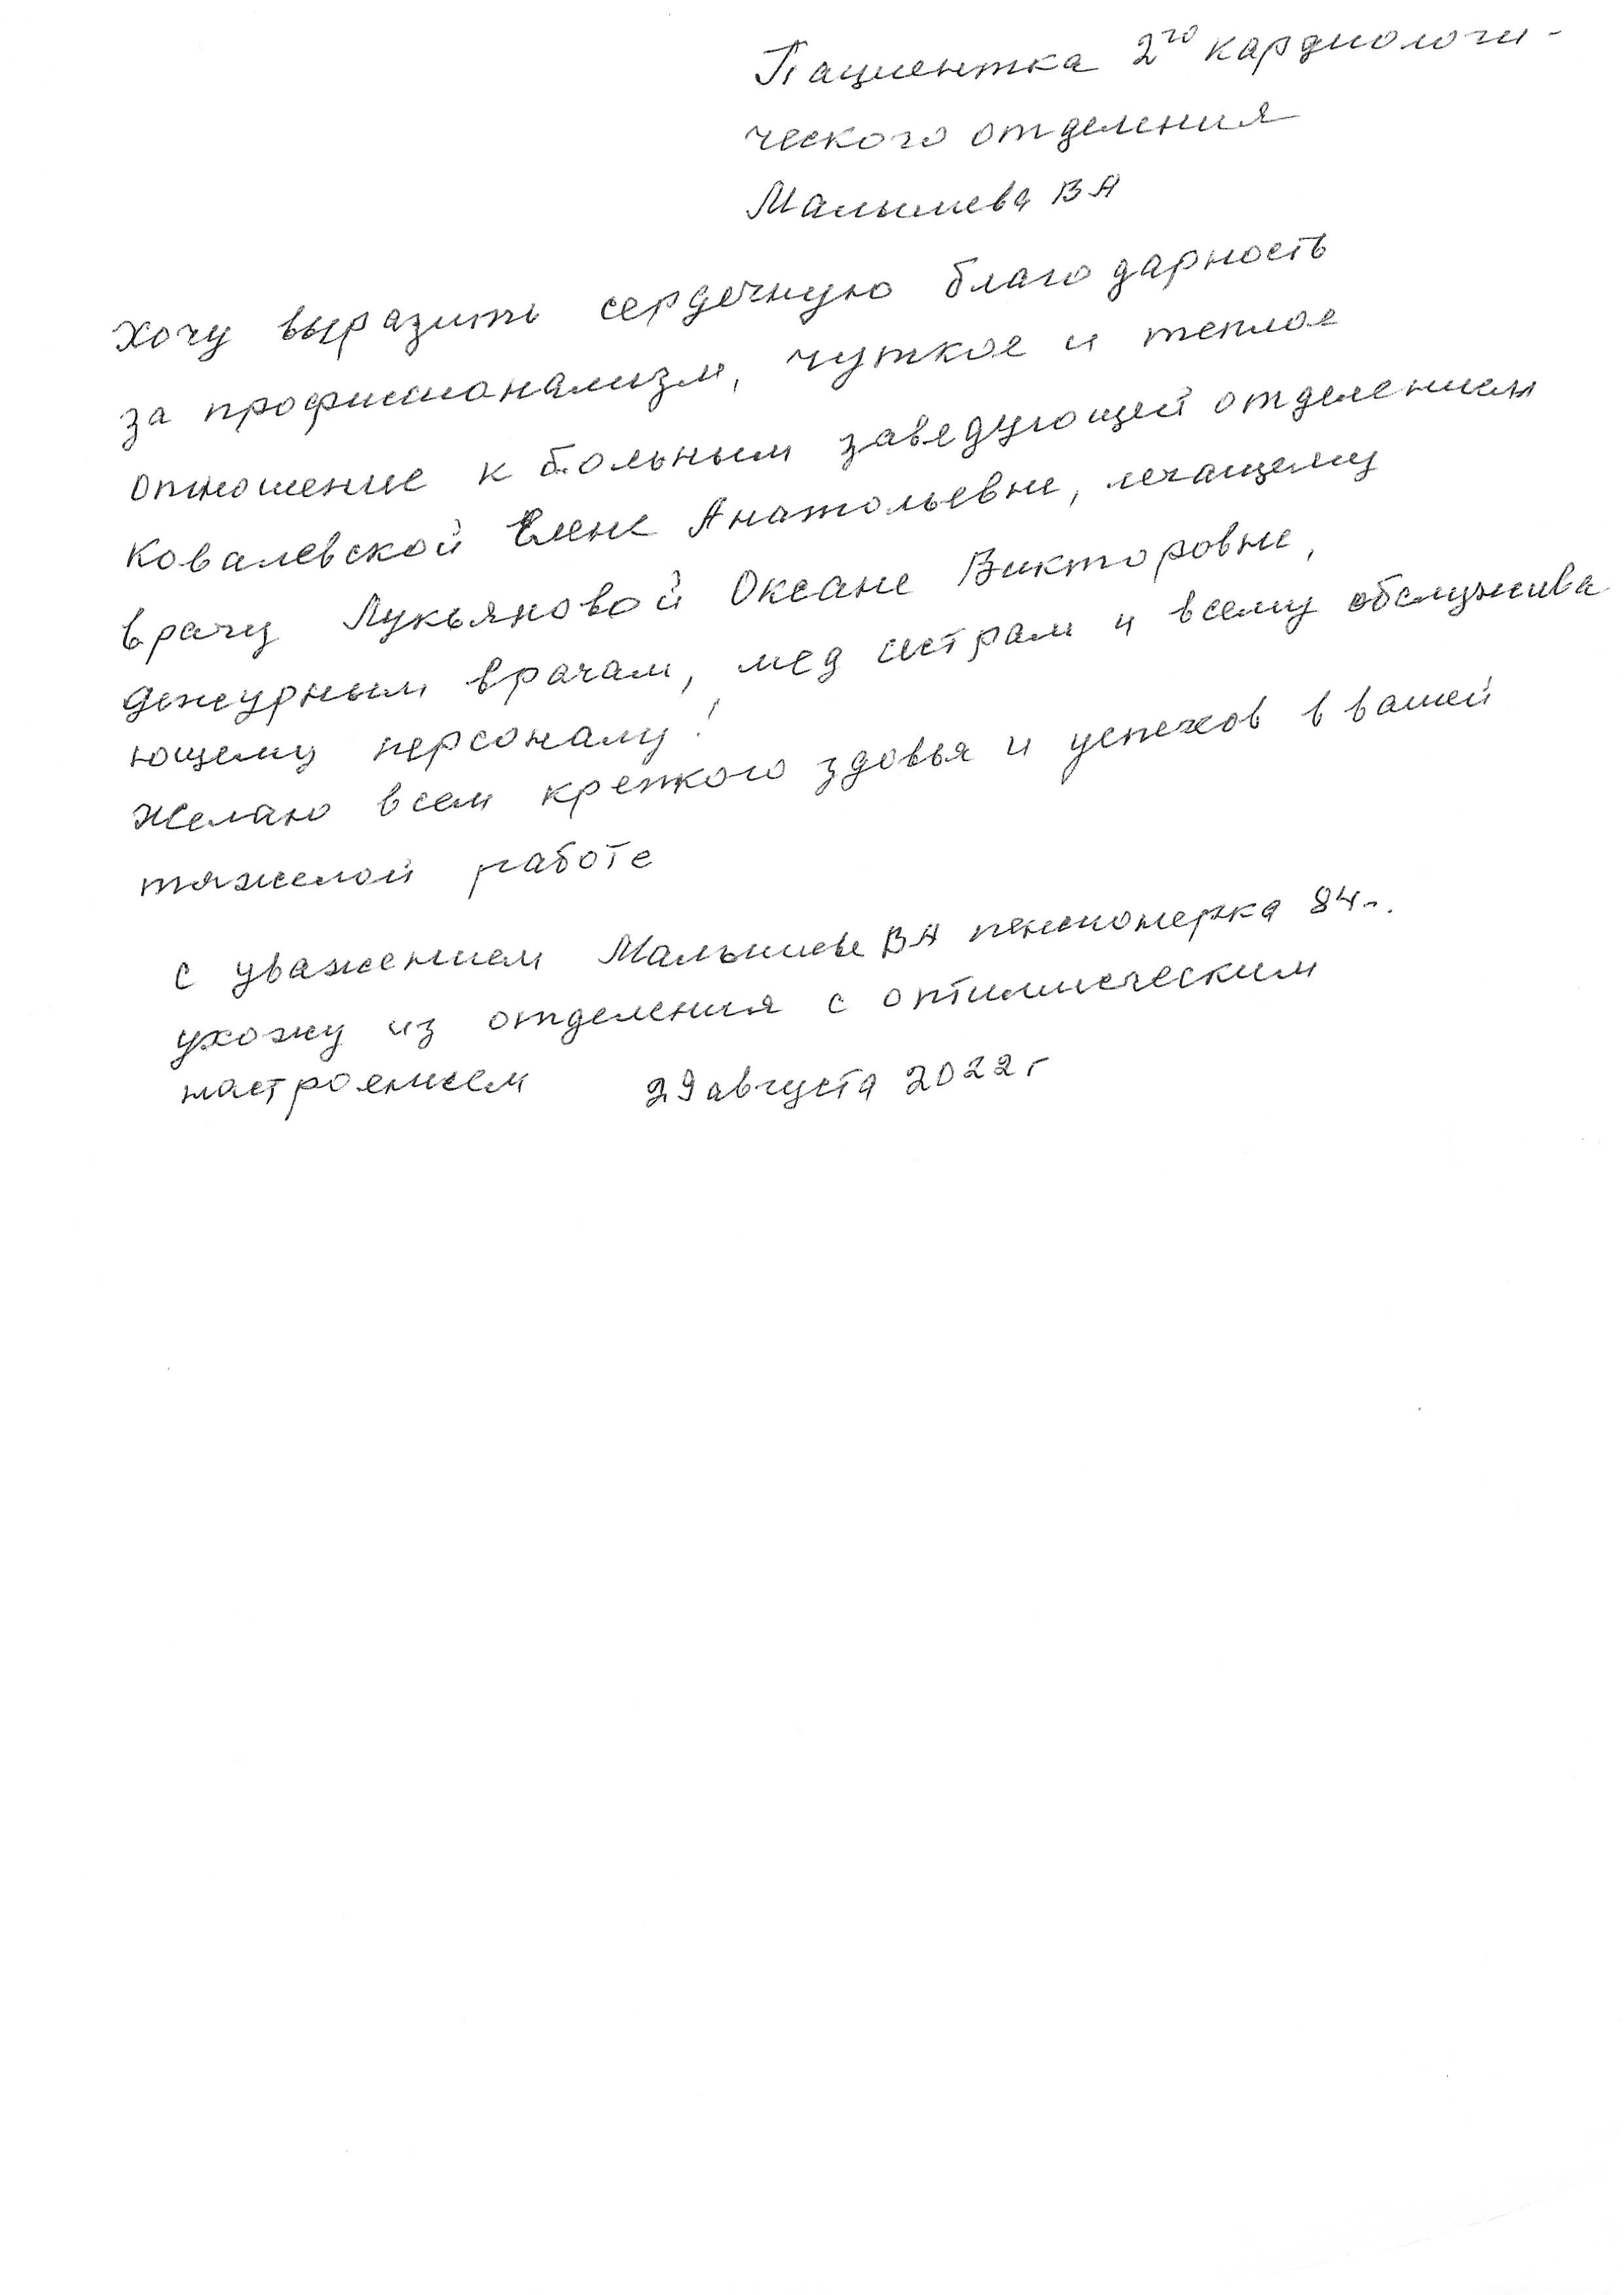 Пациентка 2го кардиологи-
ческого отделения
Малышева ВА
хочу выразить сердечную благодарность
за профиссионализм, чуткое и теплое
отношение к больным заведующей отделением
Ковалевской Елене Анатольевне, лечащему
врачу Лукьяновой Оксане Викторовне,
дежурным врачам, мед сестрам и всему обслужива
ющему персоналу!
Желаю всем крепкого здовья и успехов в вашей
тяжелой работе
с уважением Малышева ВА пенсионерка 84г.
ухожу из отделения с оптимическим
настроением 29 августа 2022 г